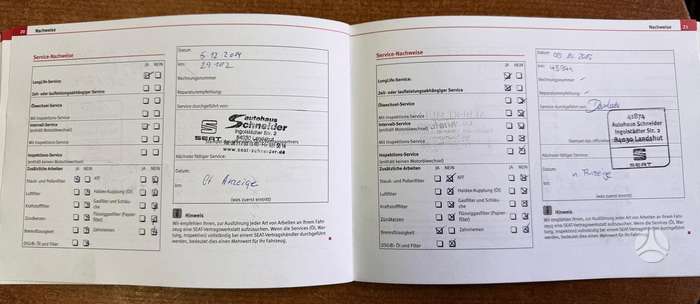 20 Nachweise
Service-Nachweise
JA NEIN
LongLife-Service
Zeit- oder laufleistungsabhängiger Service
Ölwechsel-Service
Mit Inspektions-Service
Intervall-Service
(enthält Motorölwechsel)
Mit Inspektions-Service
Inspektions-Service
(enthält keinen Motorölwechsel)
Zusätzliche Arbeiten JA NEIN JA NEIN
Staub- und Pollenfilter APF
Luftfilter Haldex-Kupplung (Öl)
Kraftstofffilter Gasfilter und Schläu-
che
Zündkerzen Flüssiggasfilter (Papier-
filter)
Bremsflüssigkeit Zahnriemen
DSG®-Öl und Filter
Datum:
5.12.2014
km:
29102
Rechnungsnummer
Reparaturempfehlung
Service durchgeführt von:
autohaus
Schneider
Ingolstädter Str. 2
84030 Landshut
SEAT
www.seat-schneider.de
Nächster fälliger Service:
Datum:
km:
Anzeige
(was zuerst eintritt)
Hinweis
Wir empfehlen Ihnen, zur Ausführung jeder Art von Arbeiten an Ihrem Fahr-
zeug eine SEAT-Vertragswerkstatt aufzusuchen. Wenn die Services (Öl, War-
tung, Inspektion) vollständig bei einem SEAT-Vertragshändler durchgeführt
werden, bedeutet dies einen Mehrwert für Ihr Fahrzeug.
Nachweise 21
Service-Nachweise
JA NEIN
LongLife-Service
Zeit- oder laufleistungsabhängiger Service
Ölwechsel-Service
Mit Inspektions-Service
Intervall-Service
(enthält Motorölwechsel)
Mit Inspektions-Service
Inspektions-Service
(enthält keinen Motorölwechsel)
Zusätzliche Arbeiten JA NEIN JA NEIN
Staub- und Pollenfilter APF
Luftfilter Haldex-Kupplung (Öl)
Kraftstofffilter Gasfilter und Schläu-
che
Zündkerzen Flüssiggasfilter (Papier-
filter)
Bremsflüssigkeit Zahnriemen
DSG®-Öl und Filter
Datum:
km:
Rechnungsnummer
Reparaturempfehlung
Service durchgeführt von:
41874
Autohaus Schneider
Ingolstädter Str. 2
84030 Landshut
SEAT
Nächster fälliger Service:
Datum:
n. Anzeige
km:
(was zuerst eintritt)
Hinweis
Wir empfehlen Ihnen, zur Ausführung jeder Art von Arbeiten an Ihrem Fahr-
zeug eine SEAT-Vertragswerkstatt aufzusuchen. Wenn die Services (Öl, War-
tung, Inspektion) vollständig bei einem SEAT-Vertragshändler durchgeführt
werden, bedeutet dies einen Mehrwert für Ihr Fahrzeug.